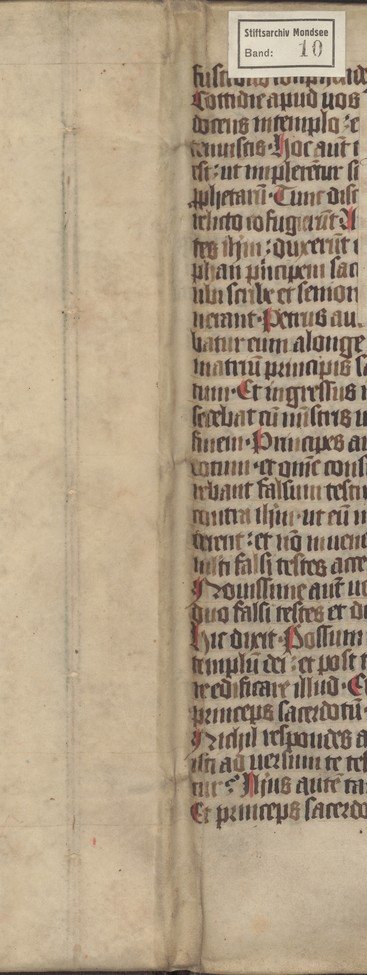 Stiftsarchiv Mondsee
Band: 10
Cottidie apud uos
docens in templo : e
tenuistis · Hoc aut t
est : ut implerētur sc
ꝓphetarū · Tunc disc
relicto eo fugerūt · A
tes ihm : duxerūt
phan pncipem sac
ubi scribe et senior
nerant · Petrus au
batur eum alonge
in atriū principis sa
dum · Et ingressus
sedebat cū mistris u
finem · Principes au
totum · et om̄e consi
rebant falsum testi
contra ihm · ut eū m
derent : et nō inuene
multi falsi testes acce
Nouissime aut ue
duo falsi testes et di
Hic dixit · Possum
templū dei : et post t
reedificare illud · Et
princeps sacerdotū ·
Nichil respondes a
isti aduersum te tes
tur · Ihus autē ta
Et princeps sacerdo